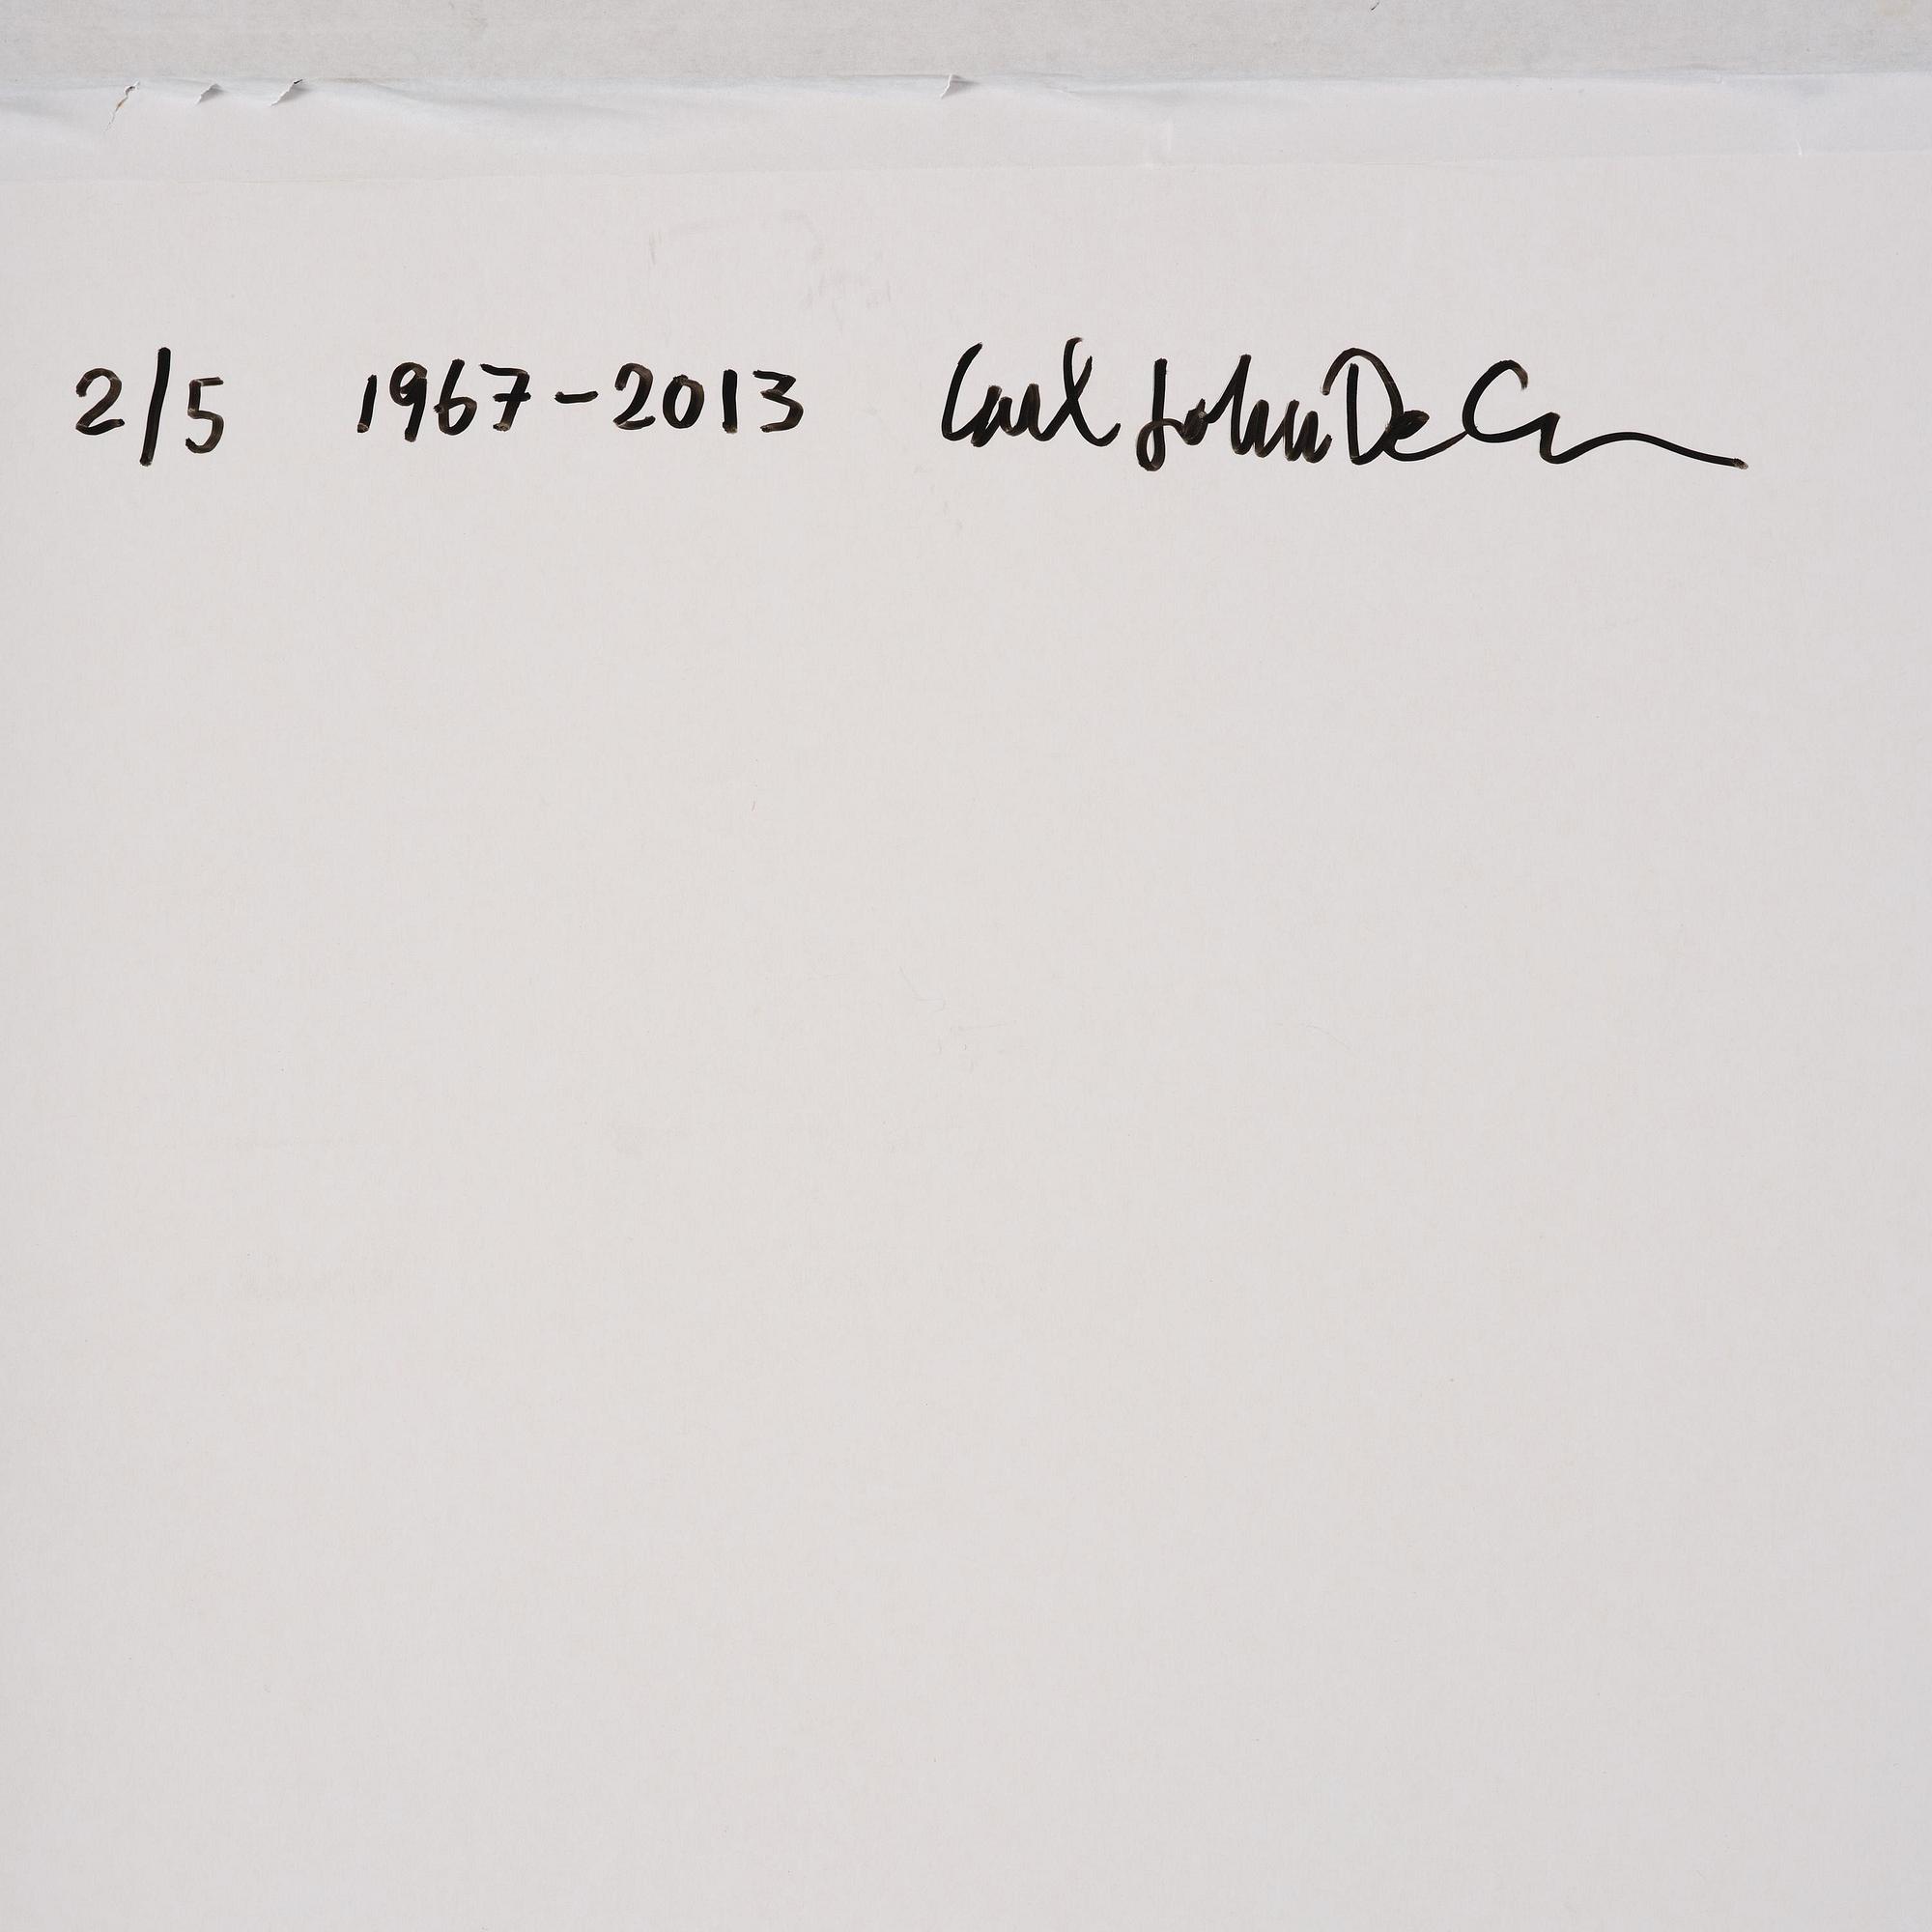 2/5 1967-2013 Carl Johan De G